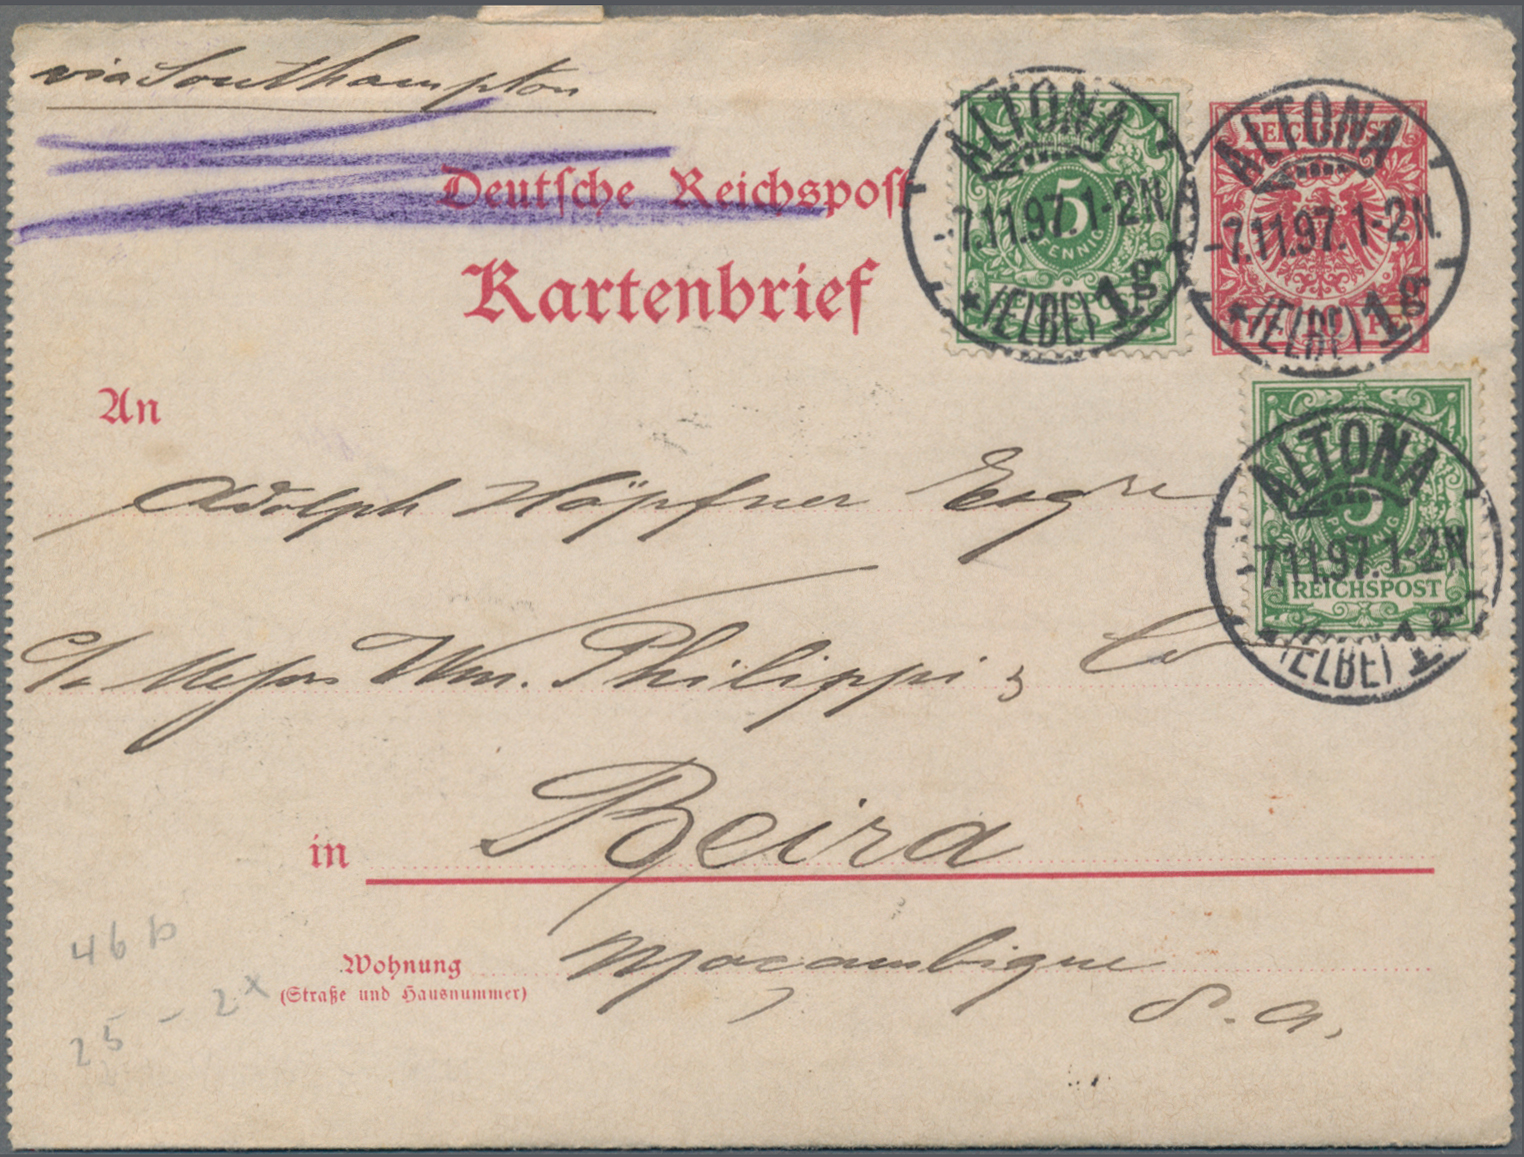 via Southampton
Deutsche Reichspost
Kartenbrief
ALTONA
-7.11.97.1-2N.
* (ELBE) 1g
5
PFENNIG
REICHSPOST
ALTONA
-7.11.97.1-2N.
* (ELBE) 1g
REICHSPOST
10
An
ALTONA
-7.11.97.1-2N
* (ELBE) 1g
5
PFENNIG
REICHSPOST
Adolph Höpfner Esqre
c/o Messrs Wm. Philippi & Co
in Beira
Wohnung Moçambique
(Straße und Hausnummer)
S. A.
46 p
25 - 2x